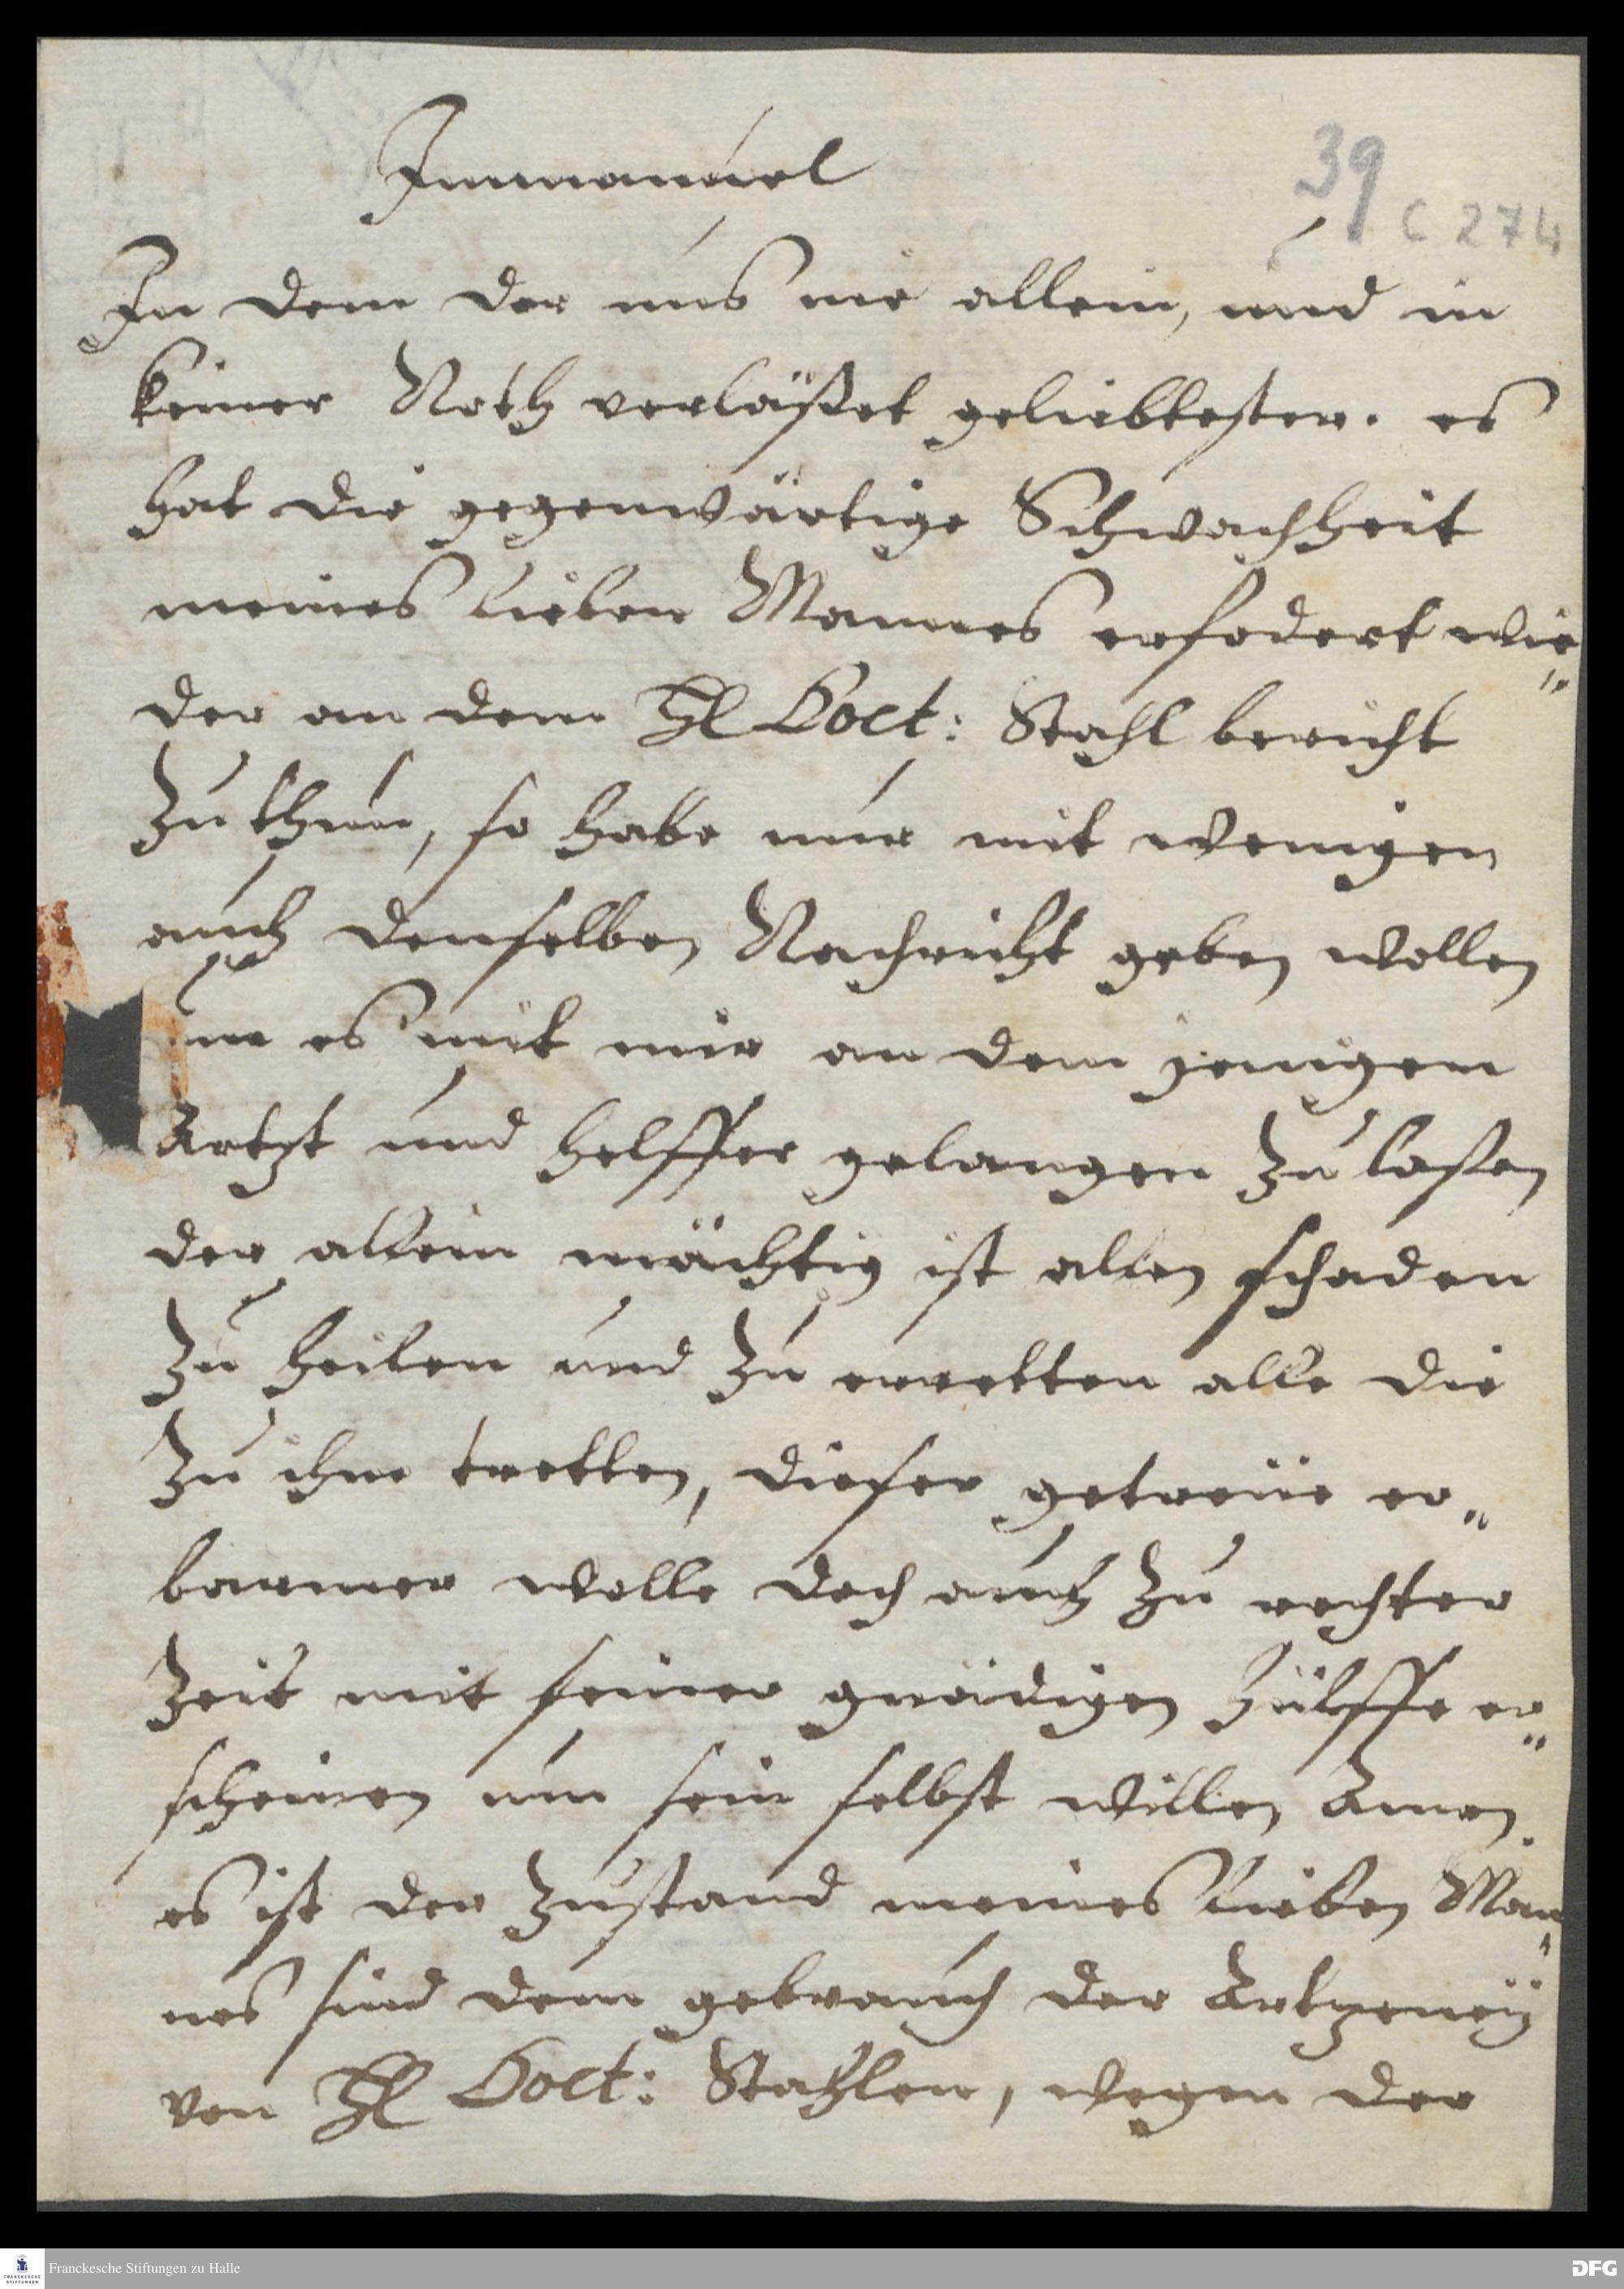 Immanuel
39
C 274
In dem der uns nie allein, und in
keiner Noth verläßet geliebtester. es
hat die gegenwärtige Schwachheit
meines lieben Mannes erfodert wie„
der an dem Hl Doct: Stahl bericht
zu thun, so habe nur mit wenigen
auch denselben Nachricht geben wollen
es mit mir an dem jenigen
Artzt und helffer gelangen zu laßen
der allein mächtig ist allen schaden
zu heilen und zu erretten alle die
zu ihm tretten, dieser getreüe er„
barmer wolle doch auch zu rechter
Zeit mit seiner gnädigen hülffe er„
scheinen um sein selbst willen Amen.
es ist der Zustand meines lieben Man„
nes sind dem gebrauch der Artzeneÿ
von Hl Doct: Stahlen, wegen der
Franckesche Stiftungen zu Halle
DFG